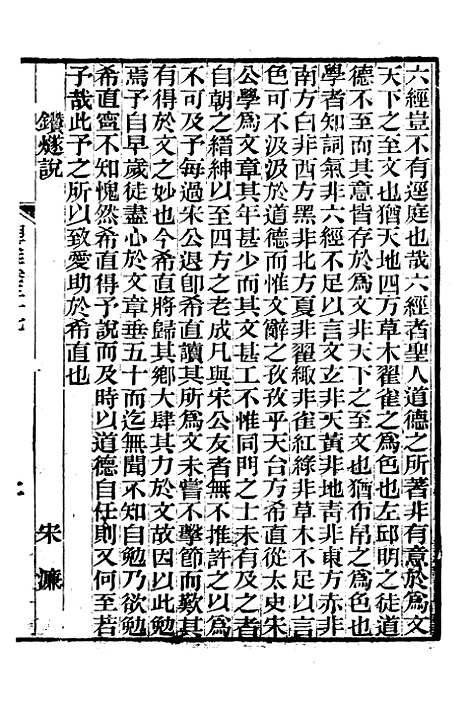 六經豈不有逕庭也哉六經者聖人道德之所著非有意於爲文
天下之至文也猶天地四方草木翟雀之爲色也左邱明之徒道
德不至而其意皆存於爲文非天下之至文也猶布帛之爲色也
學者知詞氣非六經不足以言文玄非天黃非地靑非東方赤非
南方白非西方黑非北方夏非翟緅非雀紅綠非草木不足以言
色可不汲汲於道德而惟文辭之孜孜乎天台方希直從太史朱
公學爲文章其年甚少而其文甚工不惟同門之士未有及之者
自朝之縉紳以至四方之老成凡與宋公友者無不推許之以爲
不可及予每過朱公退卽希直讀其所爲文未嘗不擊節而歎其
有得於文之妙也今希直將歸其鄉大肆其力於文故因以此勉
焉予自早歲徒盡心於文章垂五十而迄無聞不知自勉乃欲勉
希直寧不知愧然希直得予說而及時以道德自任則又何至若
子哉此予之所以致愛助於希直也
鑽燧說
宋濂